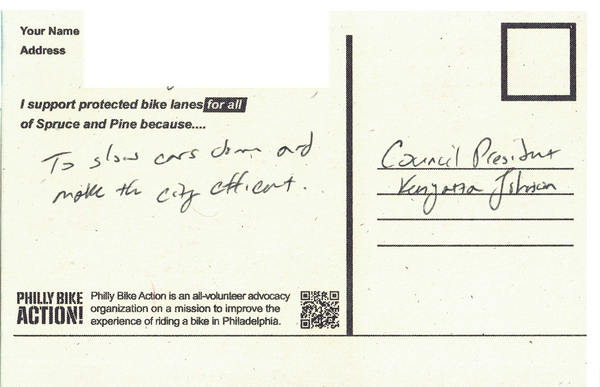 Your Name
Address
I support protected bike lanes for all
of Spruce and Pine because....
To slow cars down and
make the city efficent.
PHILLY BIKE
ACTION!
Philly Bike Action is an all-volunteer advocacy
organization on a mission to improve the
experience of riding a bike in Philadelphia.
Council President
Kenyatta Johnson